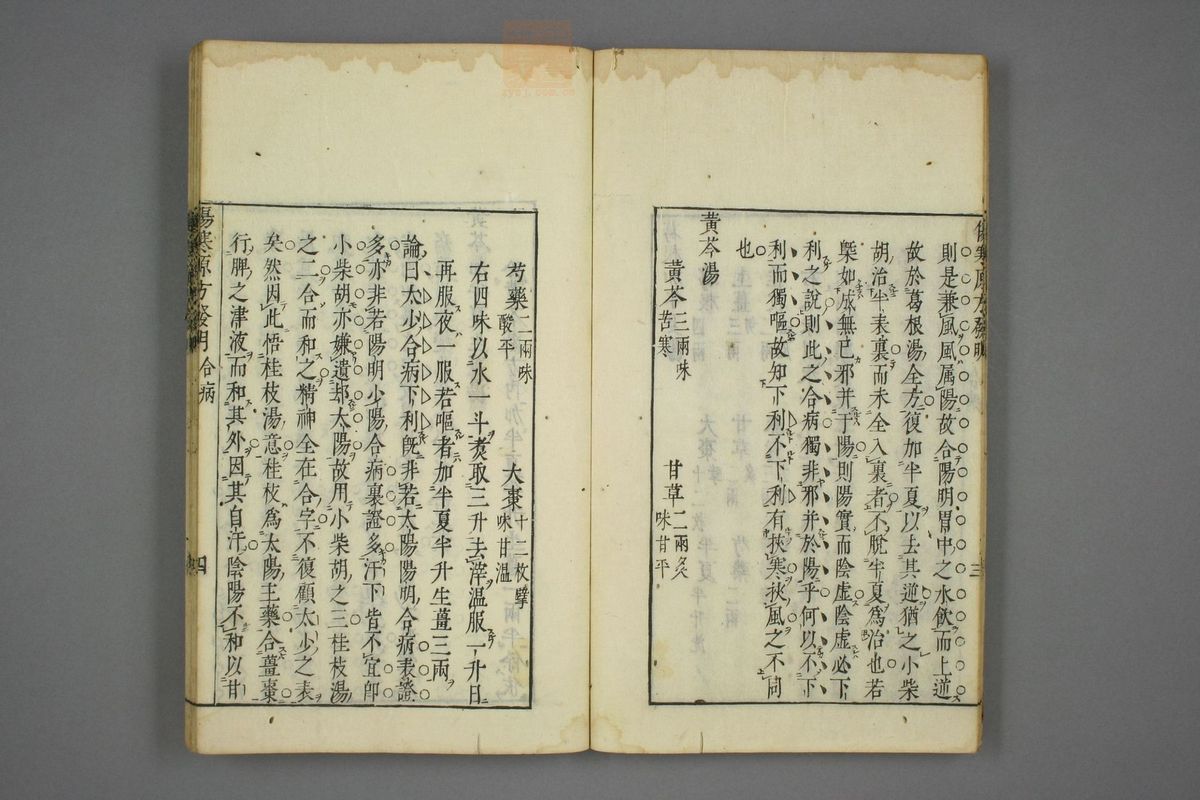 則是兼風風属陽故合陽明胃中之水飲而上逆
故於葛根湯全方復加半夏以去其逆猶之小柴
胡治半表裏而未全入裏者不脫半夏為治也若
槩如成無已邪并于陽則陽實而陰虛陰虛必下
利之說則此之合病獨非邪并於陽乎何以不下
利而獨嘔故知下利不下利有挾寒挾風之不同
也
黃芩湯
黃芩三兩味苦寒 甘草二兩炙味甘平
三
芍藥二兩味酸平 大棗十二枚擘味甘溫
右四味以水一斗煑取三升去滓溫服一升日
再服夜一服若嘔者加半夏半升生薑三兩
論曰太少合病下利旣非若太陽陽明合病表證
多亦非若陽明少陽合病裏證多汗下皆不宜卽
小柴胡亦嫌遺却太陽故用小柴胡之三桂枝湯
之二合而和之精神全在合字不復顧太少之表
矣然因此悟桂枝湯意桂枝為太陽主藥合薑棗
行脾之津液而和其外因其自汗陰陽不和以甘
傷寒原方發明 合病
四
zysj.com.cn